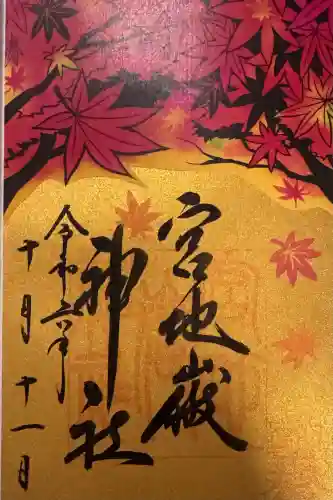 宮地嶽
神社
令和二年
十月十一日